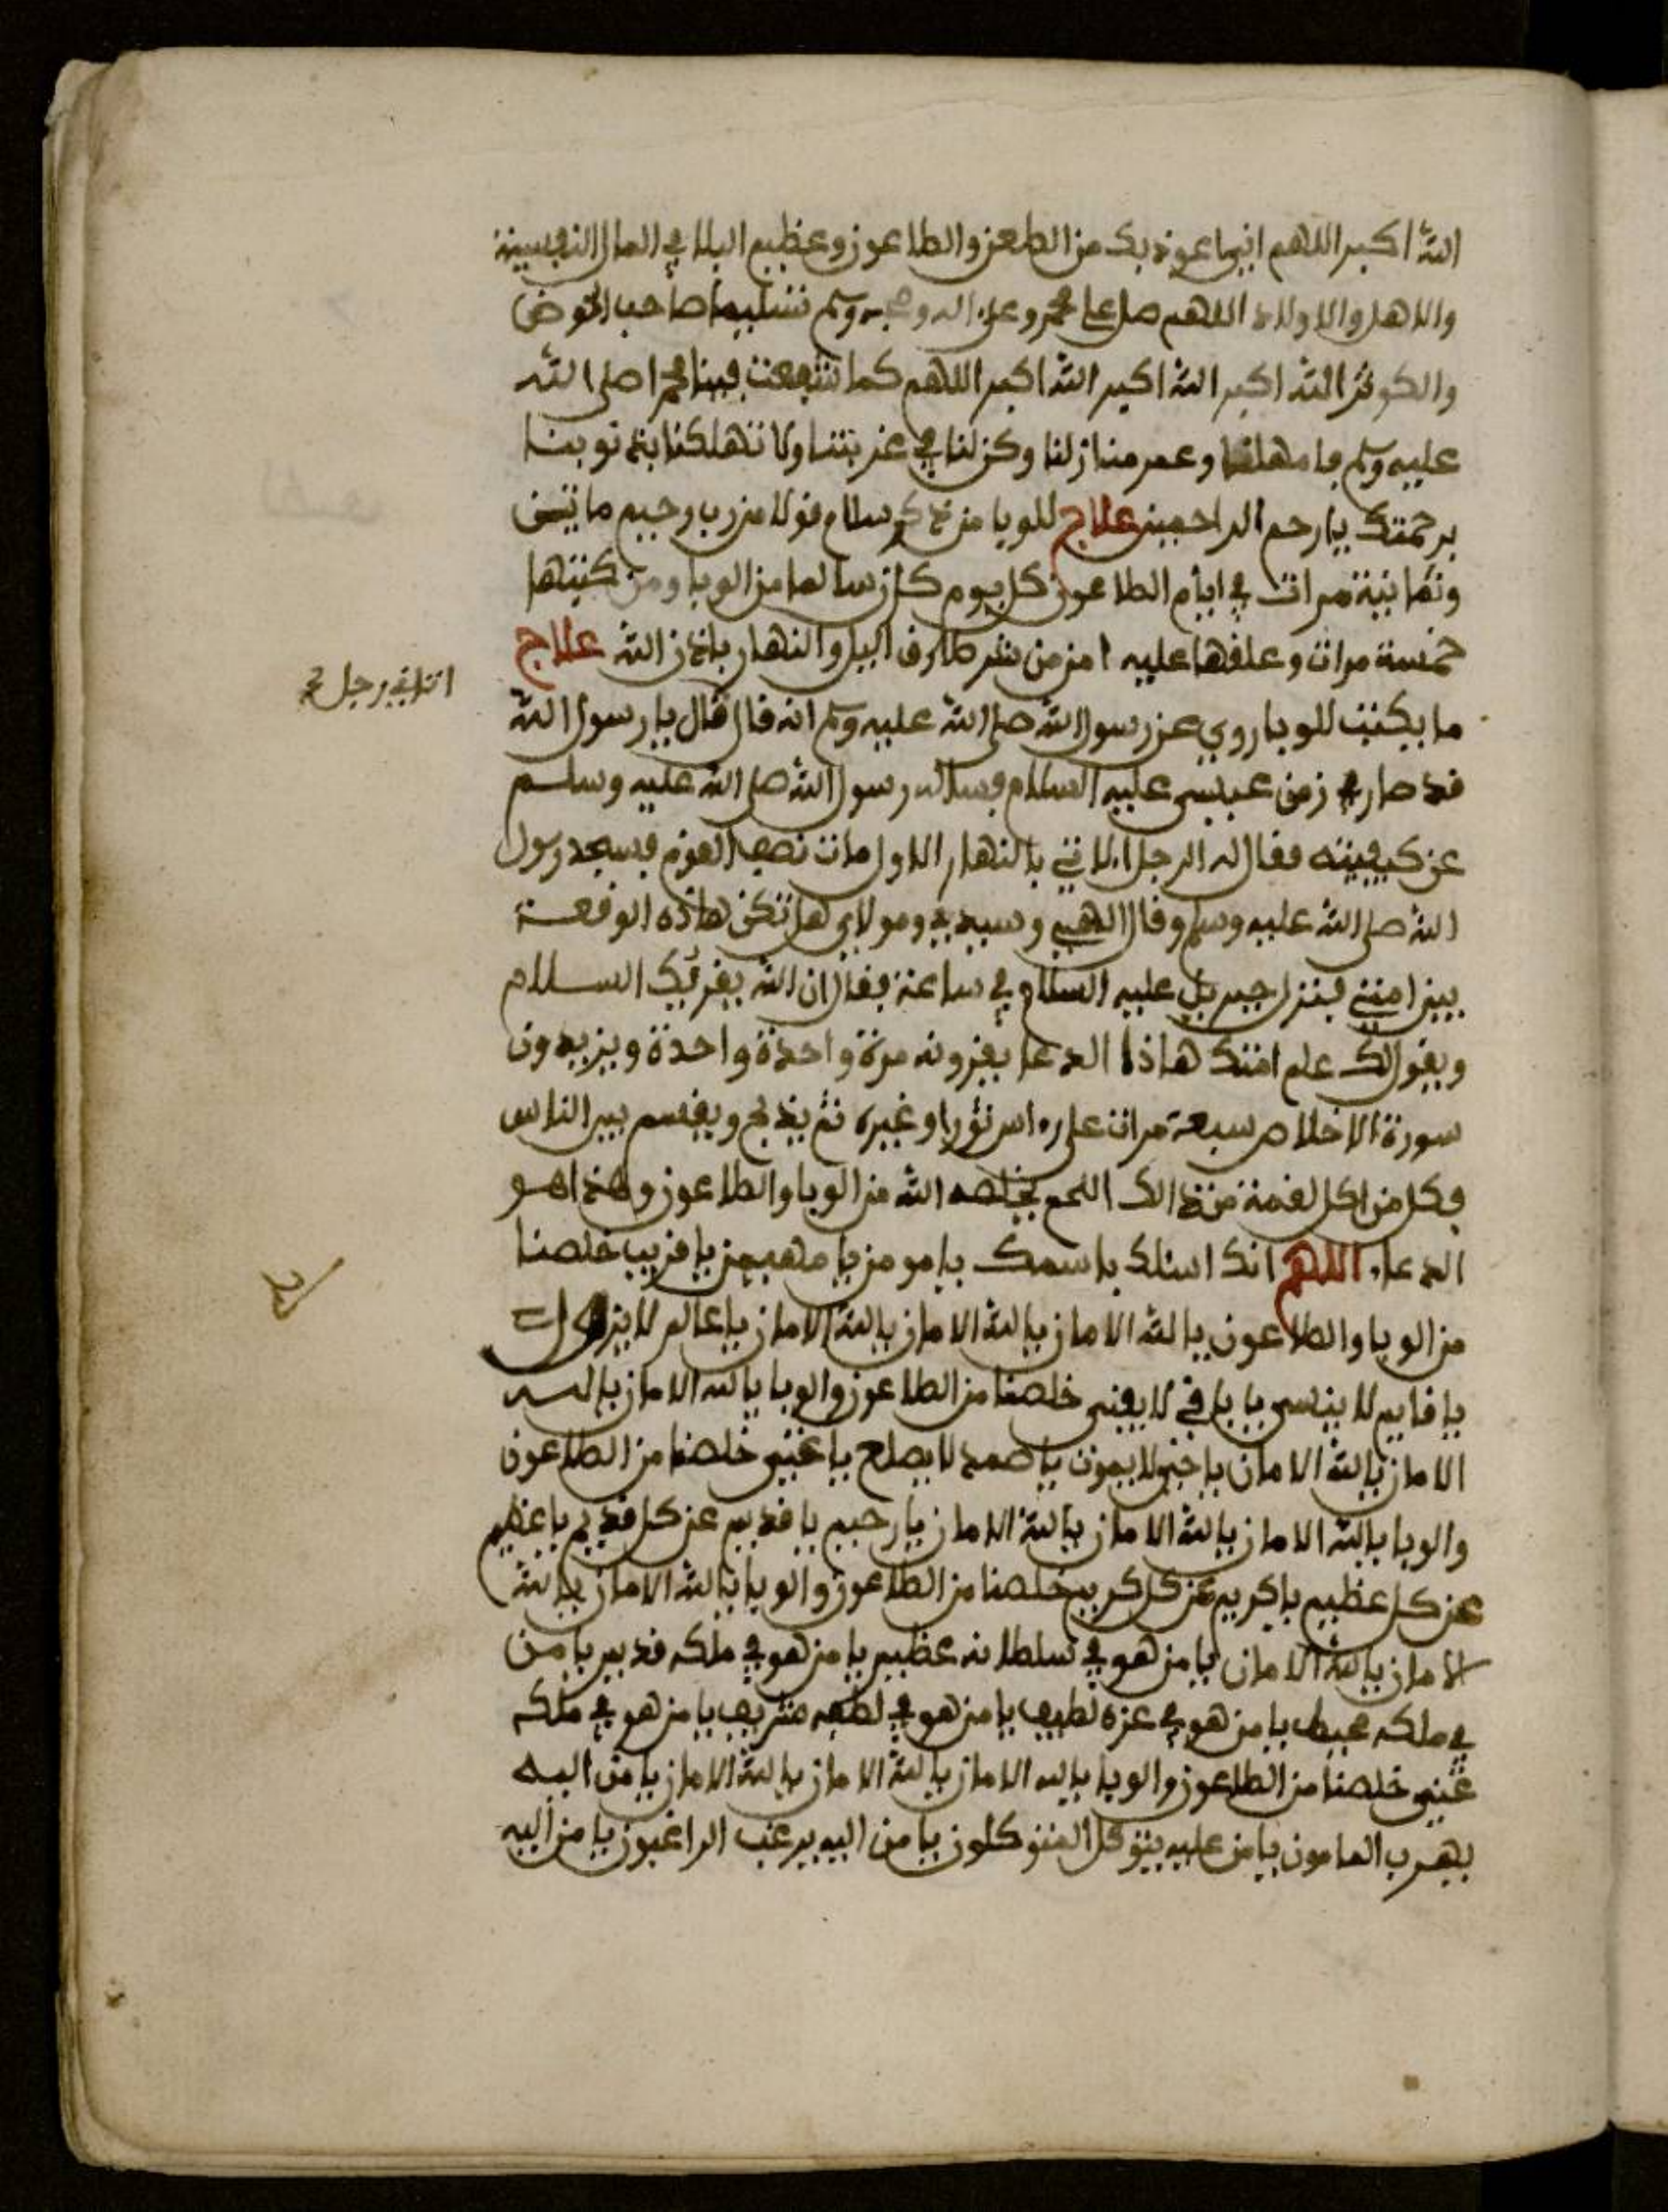 الله اكبر اللهم اني اعوذ بك من الطعن والطاعون وعظيم البلا في المال النفسية
والاهل والاولاد اللهم صل على محمد وعلى اله وصحبه وسلم تسليما صاحب الحوض
والكوثر الله اكبر الله اكبر الله اكبر اللهم كما شفعت فينا محمدا صلى الله
عليه وسلم فامهلنا وعمر منازلنا وكن لنا في غربتنا ولا تهلكنا بذنوبنا
برحمتك يارحم الراحمين علاج للوبا من ذكر سلام قولا من رب رحيم مايتين
وثمانية مرات في ايام الطاعون كل يوم كان سالما من الوبا ومن كتبها
خمسة مرات وعلقها عليه امن من شر طارق اليل والنهار باذن الله علاج
ما يكتب للوبا روي عن رسول الله صلى الله عليه وسلم انه قال قال يا رسول الله
اتاني رجل
قد صار في زمن عيسى عليه السلام فساله رسول الله صلى الله عليه وسلم
عن كيفيته فقال له الرجل بالنهار الاول مات نصف القوم فسجد رسول
الله صلى الله عليه وسلم وقال الهي وسيدي ومولاي هل تكن هاذه الوقعة
بين امتي فنزل جبريل عليه السلام في ساعة فقال ان الله يقرئك السلام
ويقول لك علم امتك هاذا الدعا يقرونه مرة واحدة واحدة ويزيدون
سورة الاخلاص سبعة مرات على راس ثور او غيره ثم يذبح ويقسم بين الناس
فكل من اكل لقمة من ذالك اللحم يخلصه الله من الوبا والطاعون وهذا هو
الدعاء اللهم انك اسئلك باسمك يا مومن يا مهيمن يا قريب خلصنا
من الوبا والطاعون يا الله الامان يا الله الامان يا الله الامان يا عالم لا يزول
يا قايم لا ينسى يا باقي لا يفنى خلصنا من الطاعون والوبا يا الله الامان يا الله
الامان يا الله الامان يا حي لا يموت يا صمد لا يطعم يا غني خلصنا من الطاعون
والوبا يا الله الامان يا الله الامان يا الله الامان يا رحيم يا قديم عن كل قديم يا عظيم
عن كل عظيم يا كريم عن كل كريم خلصنا من الطاعون والوبا يا الله الامان يا الله
الامان يا الله الامان يا من هو في سلطانه عظيم يا من هو في ملكه قديم يا من
في ملكه محيط يا من هو في عزه لطيف يا من هو في لطفه شريف يا من هو في ملكه
غني خلصنا من الطاعون والوبا يا الله الامان يا الله الامان يا الله الامان يا من اليه
يهرب يا من عليه يتوكل المتوكلون يا من اليه يرغب الراغبون يا من اليه